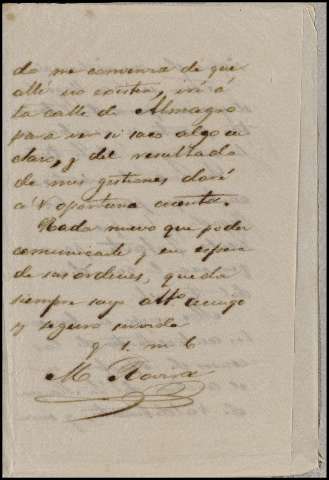 do me convenza de que
allí no existen, iré á
la calle de Almagro
para ver si saco algo en
claro, y del resultado
de mis gestiones daré
á V. oportuna cuenta.
Nada nuevo que poder
comunicarle y en espera
de sus órdenes, queda
siempre suyo affº amigo
y seguro servidor
q s m b
M